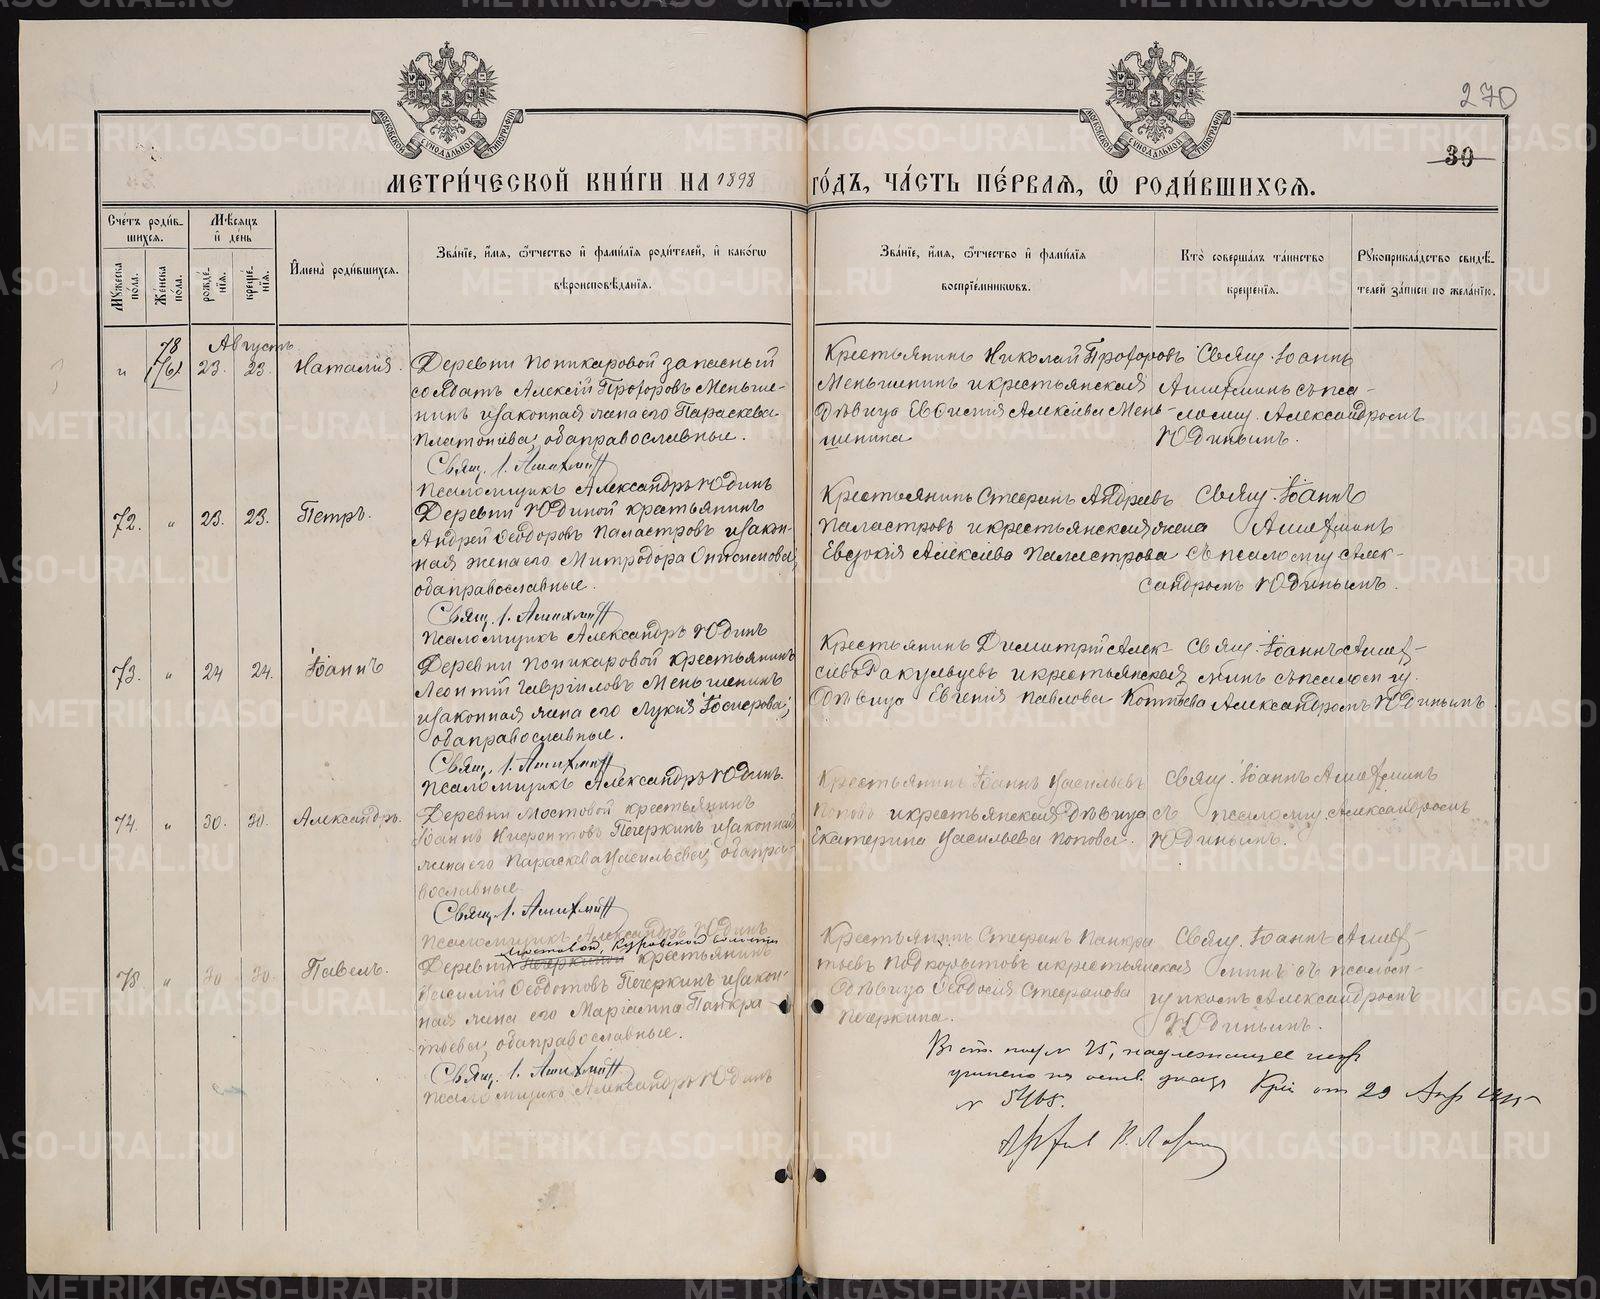 270
30
МОСКОВСКОЙ СѴНОДАЛЬНОЙ ТИПОГРАФІИ
МОСКОВСКОЙ СѴНОДАЛЬНОЙ ТИПОГРАФІИ
МЕТРИ́ЧЕСКОЙ КНИ́ГИ НА 1898 ГО́ДЪ, ЧА́СТЬ ПЕ́РВАѦ, Ѡ҆ РОДИ́ВШИХСѦ.
Сче́тъ роди́в-
шихся.
Мѣ́сяцъ
и҆ де́нь
Мꙋ́жеска
по́ла.
Же́нска
по́ла.
рожде́-
нїя.
креще́-
нїя.
И҆мена̀ роди́вшихся.
Зва́нїе, и҆́мя, ѻ҆́тчество и҆ фами́лїя роди́телей, и҆ како́гѡ
вѣроисповѣ́данїя.
Зва́нїе, и҆́мя, ѻ҆́тчество и҆ фами́лїя
воспрїе́мникѡвъ.
Кто̀ соверша́лъ та́инство
креще́нїя.
Рꙋкоприкла́дство свидѣ́-
телей за́писи по жела́нїю.
Августъ
78
23. 23. Наталія.
Деревни Поникаровой запасный
солдатъ Алексій Прохоровъ Меньше-
нинъ и законная жена его Параскева
Платонова, оба православные.
Свящ. І. Ашихмин
Псаломщикъ Александръ Юдинъ
Крестьянинъ Николай Прохоровъ
Меньшенинъ и крестьянская
дѣвица Евѳимія Алексіева Мень-
шенина
Свящ. Іоаннъ
Ашихминъ съ пса-
ломщ. Александромъ
Юдинымъ.
72. " 23. 23. Петръ.
Деревни Юдиной крестьянинъ
Андрей Ѳеодоровъ Паластровъ и закон-
ная жена его Митродора
оба православные.
Свящ. І. Ашихмин
Псаломщикъ Александръ Юдинъ
Крестьянинъ Стефанъ Андреевъ
Паластровъ и крестьянская жена
Евдокія Алексіева Паластрова
Свящ. Іоаннъ
Ашихминъ
съ псаломщ Алек-
сандромъ Юдинымъ.
73. " 24 24. Іоаннъ
Деревни Поникаровой крестьянинъ
Леонтій Гавріиловъ Меньшенинъ
и законная жена его Лукія
оба православные.
Свящ. І. Ашихмин
Псаломщикъ Александръ Юдинъ.
Крестьянинъ Димитрій Алек
сіевъ Ракульцевъ и крестьянская
дѣвица Евгенія Павлова
Свящ. Іоаннъ Аших-
минъ съ псаломщ.
Александромъ Юдинымъ
74. " 30. 30. Александръ.
Деревни Мостовой крестьянинъ
Іоаннъ Печеркинъ и законная
жена его Параскева Васильева, оба пра-
вославные
Свящ. І. Ашихмин
Псаломщикъ Александръ Юдинъ
Крестьянинъ Іоаннъ Васильевъ
Поповъ и крестьянская дѣвица
Екатерина Васильева Попова.
Свящ. Іоаннъ Ашихминъ
съ псаломщ. Александромъ
Юдинымъ.
78. " 30 30. Павелъ.
Мостовой, Куровской волости
Деревни крестьянинъ
Василій Ѳеодотовъ Печеркинъ и закон-
ная жена его Маріамна Панкра-
тьева, оба православные.
Свящ. І. Ашихмин
Псаломщикъ Александръ Юдинъ
Крестьянинъ Стефанъ Панкра
тьевъ Подкорытовъ и крестьянская
дѣвица Ѳеодосія Стефанова
Печеркина.
Свящ. Іоаннъ Аших-
минъ съ псалом-
щикомъ Александромъ
Юдинымъ.
от 29